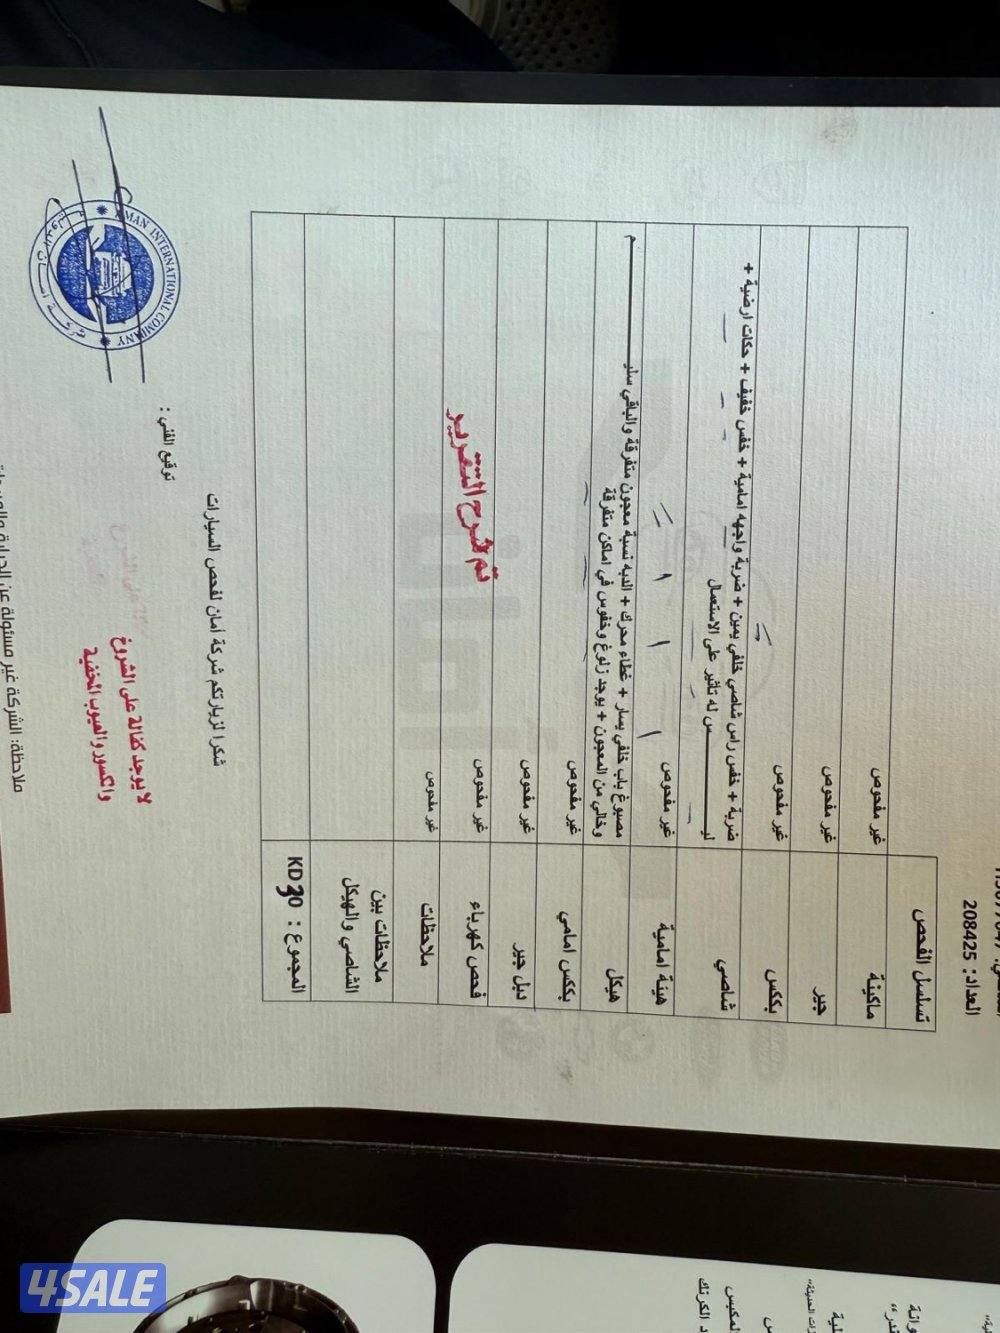 العداد: 208425
تسلسل الفحص
ماكينة
غير مفحوص
جير
غير مفحوص
بككس
غير مفحوص
شاصي
ضربة + خفس راس شاصي خلفي يمين + ضربة واجهه امامية + خفس خفيف + حكات ارضية +
ليـــــــس له تأثير على الاستعمال
هيئة امامية
غير مفحوص
هيكل
مصبوغ باب خلفي يسار + غطاء محرك + الدبه نسبة معجون متفرقة والباقي سليـــــــم
وخالي من المعجون + يوجد زلوغ وخفوس في اماكن متفرقة
بككس امامي
غير مفحوص
دبل جير
غير مفحوص
فحص كهرباء
غير مفحوص
ملاحظات
غير مفحوص
تم شرح التقرير
ملاحظات بين
الشاصي والهيكل
المجموع : 30 KD
شكرا لزيارتكم شركة أمان لفحص السيارات
توقيع الفني :
لا يوجد كفالة على الشروغ
والكسور والعيوب المخفية
AMAN INTERNATIONAL COMPANY
ملاحظة: الشركة غير مسئولة عن
4SALE